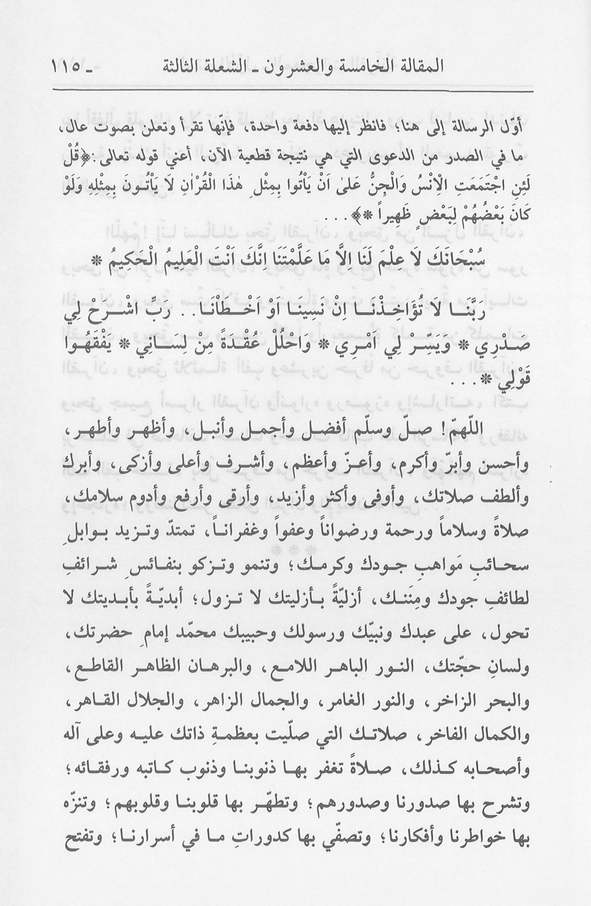 المقالة الخامسة والعشرون ـ الشعلة الثالثة ـ ١١٥
أوّل الرسالة إلى هنا؛ فانظر إليها دفعة واحدة، فإنّها تقرأ وتعلن بصوت عال،
ما في الصدر من الدعوى التي هي نتيجة قطعية الآن، أعني قوله تعالى: ﴿قُلْ
لَئِنِ اجْتَمَعَتِ الْاِنْسُ وَالْجِنُّ عَلىٰ اَنْ يَاْتُوا بِمِثْلِ هٰذَا الْقُرْاٰنِ لَا يَاْتُونَ بِمِثْلِهِ وَلَوْ
كَانَ بَعْضُهُمْ لِبَعْضٍ ظَهِيراً *﴾...
سُبْحَانَكَ لَا عِلْمَ لَنَا اِلاَّ مَا عَلَّمْتَنَا اِنَّكَ اَنْتَ الْعَلِيمُ الْحَكِيمُ *
رَبَّنَا لَا تُؤَاخِذْنَا اِنْ نَسِينَا اَوْ اَخْطَاْنَا.. رَبِّ اشْرَحْ لِي
صَدْرِي * وَيَسِّرْ لِي اَمْرِي * وَاحْلُلْ عُقْدَةً مِنْ لِسَانِي * يَفْقَهُوا
قَوْلِي *...
اللّهمّ! صلّ وسلّم أفضل وأجمل وأنبل، وأظهر وأطهر،
وأحسن وأبرّ وأكرم، وأعزّ وأعظم، وأشرف وأعلى وأزكى، وأبرك
وألطف صلاتك، وأوفى وأكثر وأزيد، وأرقى وأرفع وأدوم سلامك،
صلاةً وسلاماً ورحمة ورضواناً وعفواً وغفراناً، تمتدّ وتزيد بوابلِ
سحائبِ مَواهبِ جودك وكرمك؛ وتنمو وتزكو بنفائسِ شرائفِ
لطائفِ جودك ومِنَنك، أزليّةً بأزليتك لا تزول؛ أبديّةً بأبديتك لا
تحول، على عبدك ونبيّك ورسولك وحبيبك محمّد إمامِ حضرتك،
ولسانِ حجّتك، النور الباهر اللامع، والبرهان الظاهر القاطع،
والبحر الزاخر، والنور الغامر، والجمال الزاهر، والجلال القاهر،
والكمال الفاخر، صلاتك التي صلّيت بعظمةِ ذاتك عليه وعلى آله
وأصحابه كذلك، صلاةً تغفر بها ذنوبنا وذنوب كاتبه ورفقائه؛
وتشرح بها صدورنا وصدورهم؛ وتطهّر بها قلوبنا وقلوبهم؛ وتنزّه
بها خواطرنا وأفكارنا؛ وتصفّي بها كدوراتِ ما في أسرارنا؛ وتفتح